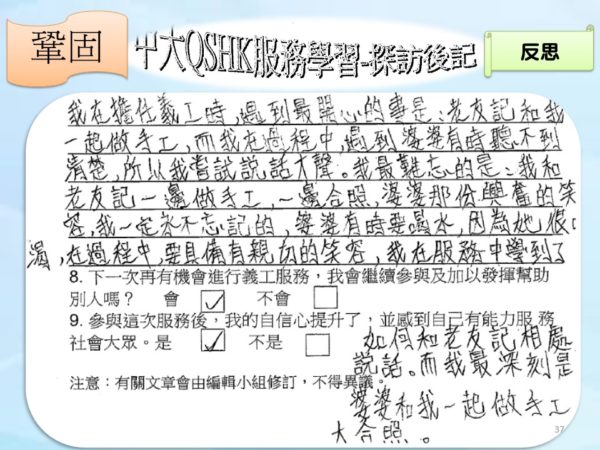 鞏固
中大QSHK服務學習-探訪後記
反思
我在擔任義工時,遇到最開心的事是:老友記和我
一起做手工,而我在過程中,遇到婆婆有時聽不到
清楚,所以我嘗試説話大聲。我最難忘的是:我和
老友記一邊做手工,一邊合照,婆婆那份興奮的笑
容,我一定永不忘記的,婆婆有時要喝水,因為她很口
渴,在過程中,要具備有親切的笑容,我在服務中學到了
8. 下一次再有機會進行義工服務,我會繼續參與及加以發揮幫助
別人嗎? 會 ✓ 不會
9. 參與這次服務後,我的自信心提升了,並感到自己有能力服務
社會大眾。是 ✓ 不是
如何和老友記相處
説話。而我最深刻是
注意:有關文章會由編輯小組修訂,不得異議。
婆婆和我一起做手工
大合照。
37